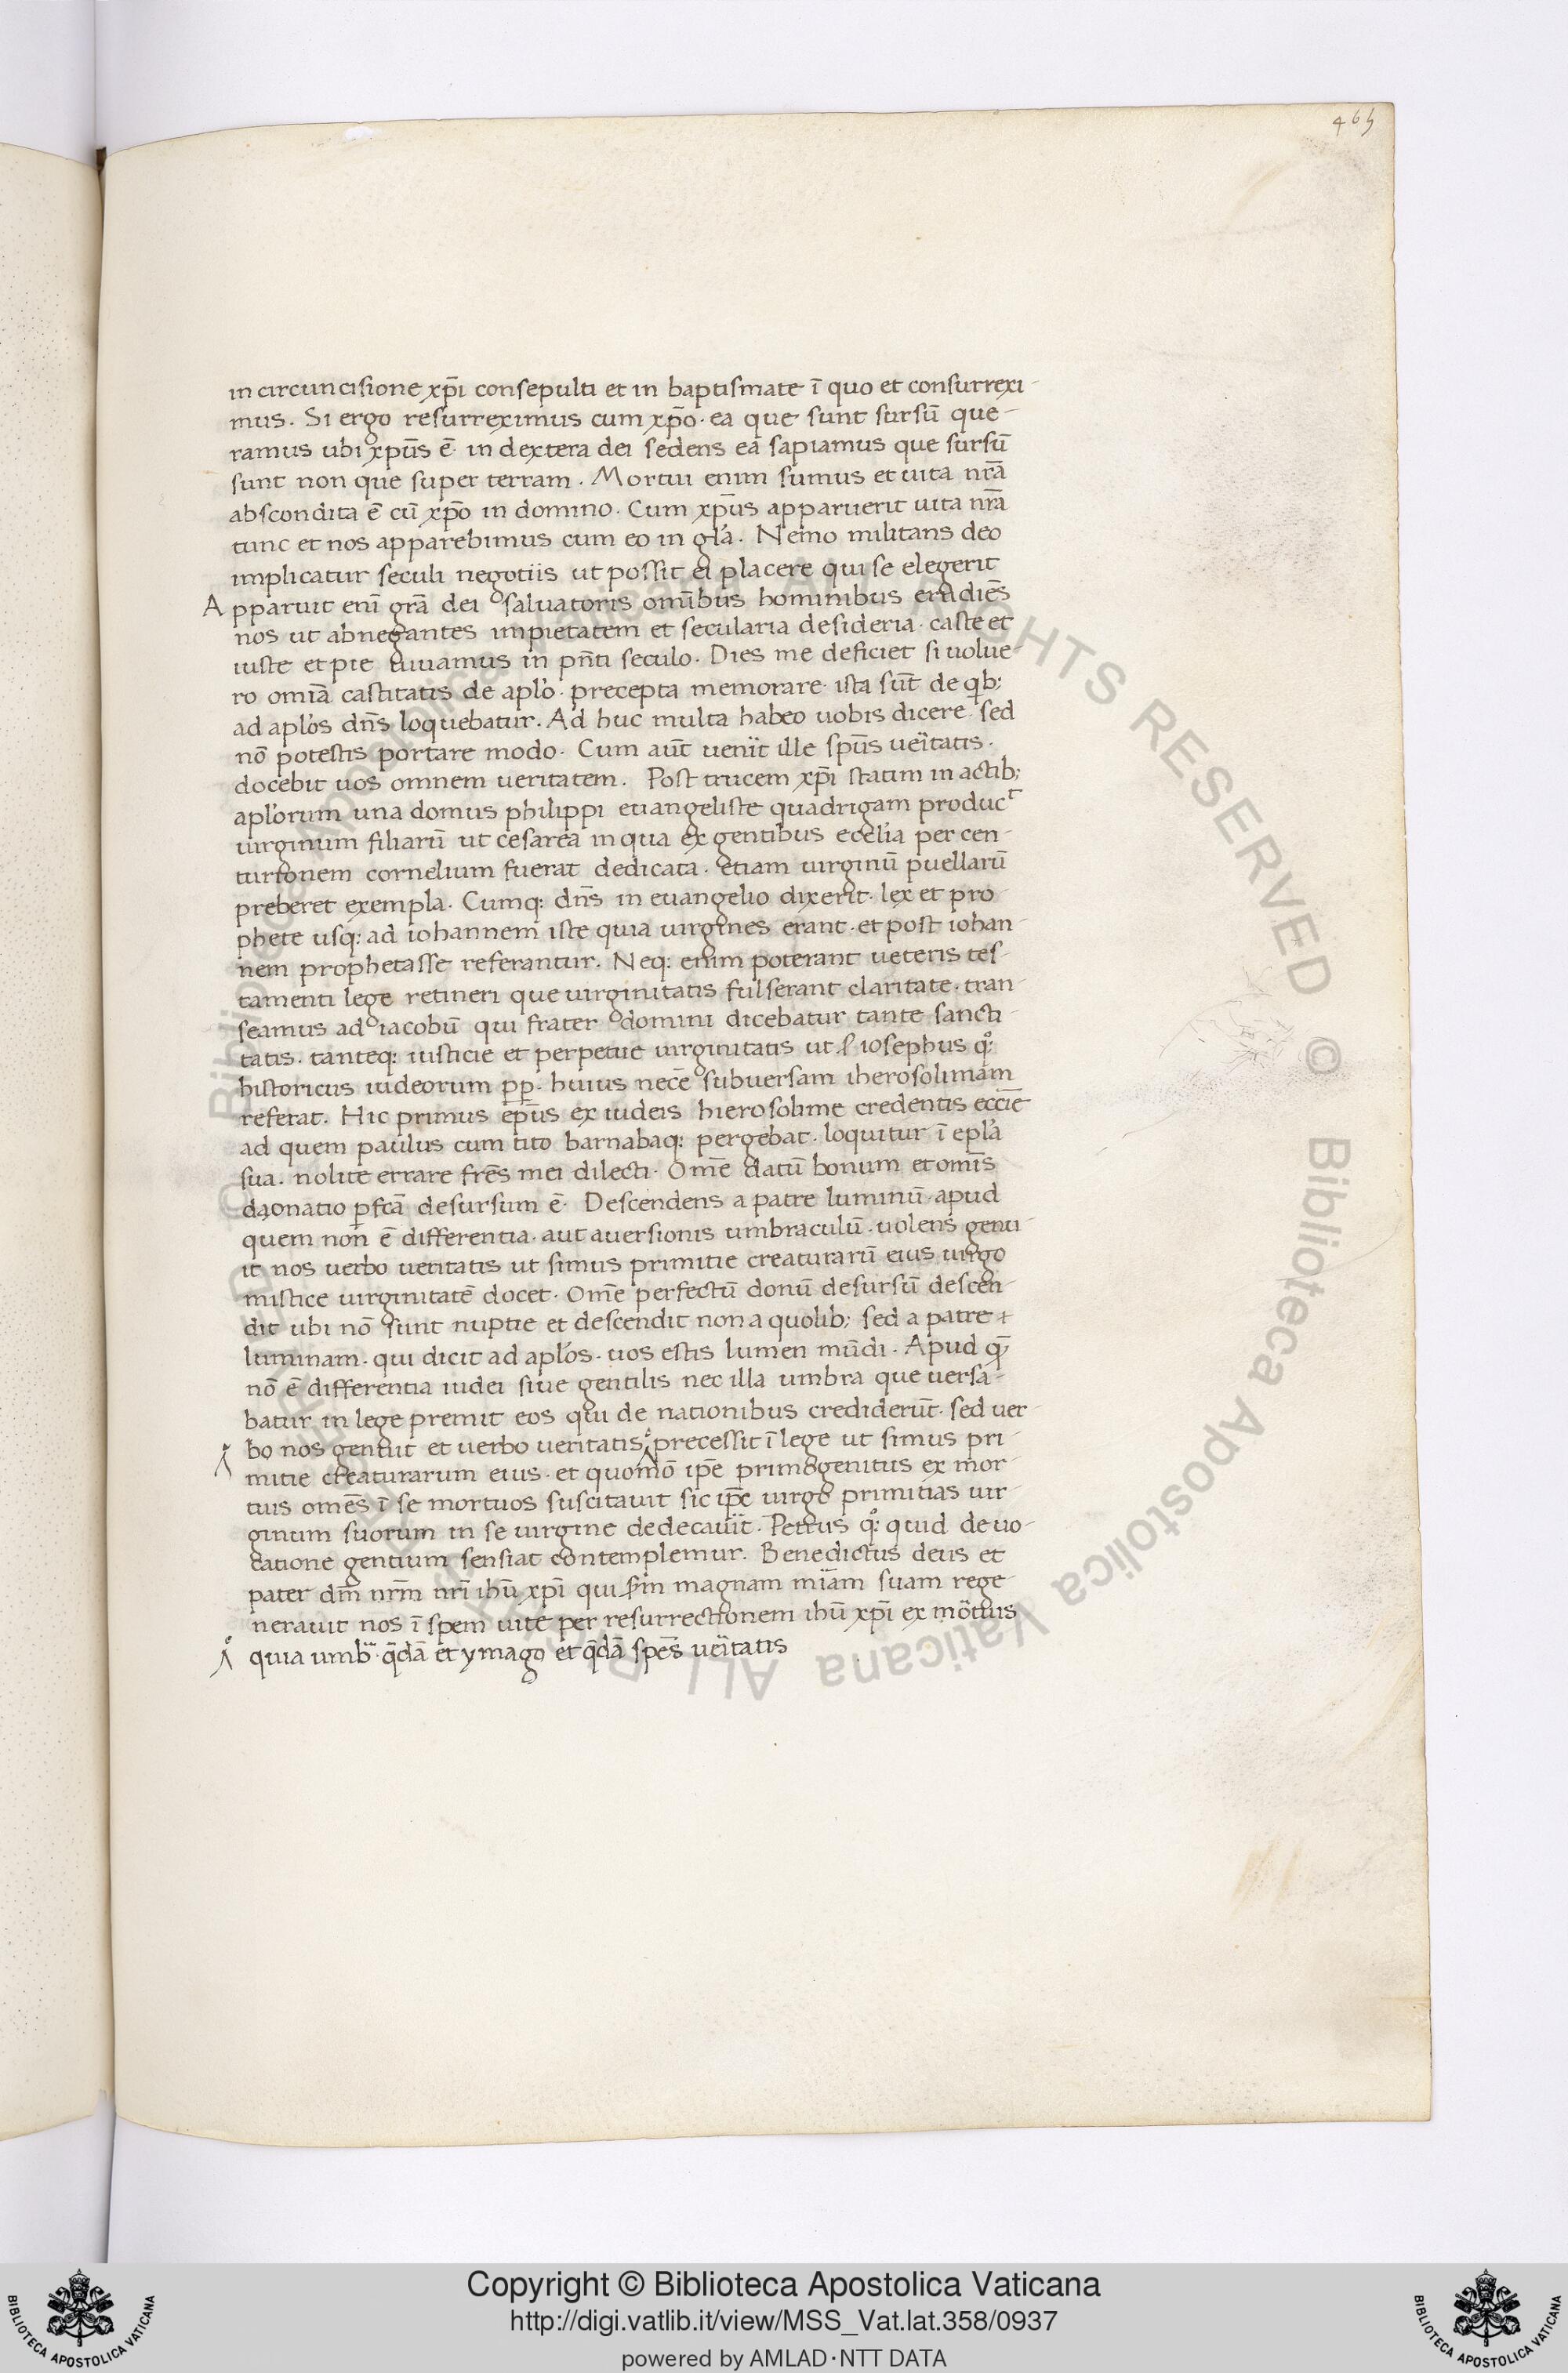 465
in circuncisione xp̄i consepulti et in baptismate ī quo et consurrexi-
mus. Si ergo resurreximus cum xp̄o· ea que sunt sursū que-
ramus ubi xpūs ē· in dextera dei sedens ea sapiamus que sursū
sunt non que super terram. Mortui enim sumus et uita nr̄a
abscondita ē cū xp̄o in domino. Cum xpūs apparuerit uita nr̄a
tunc et nos apparebimus cum eo in gl'a. Nemo militans deo
implicatur seculi negotiis ut possit ei placere qui se elegerit
Apparuit eni᷄ grā dei saluatoris omībus hominibus erudiēs
nos ut abnegantes impietatem et secularia desideria· caste et
iuste et pie uiuamus in pn̄ti seculo. Dies me deficiet si uolue-
ro omīa castitatis de apl'o· precepta memorare· ista sūt de qb;
ad apl'os dn̄s loquebatur. Ad huc multa habeo uobis dicere· sed
nō potestis portare modo. Cum aūt uenit ille spūs ueritatis·
docebit uos omnem ueritatem. Post trucem xp̄i statim in actib;
apl'orum una domus philippi euangeliste quadrigam product
uirginum filiarū ut cesarea in qua ex gentibus ecel'ia per cen-
turionem cornelium fuerat dedicata· etiam uirginū puellarū
preberet exempla. Cumq: dn̄s in euangelio dixerit· lex et pro-
phete usq: ad iohannem iste quia uirgines erant· et post iohan-
nem prophetasse referantur. Neq: enim poterant ueteris tes-
tamenti lege retineri que uirginitatis fulserant claritate· tran-
seamus ad iacobū qui frater domini dicebatur tante sancti-
tatis· tanteq: iusticie et perpetue uirginitatis ut iosephus qͦ:
historicus iudeorum pp̄· huius nece᷄ subuersam iherosolimam
referat. Hic primus ep̄us ex iudeis hierosolime credentis eccīe
ad quem paulus cum tito barnabaq: pergebat· loquitur ī epl'a
sua. nolite errare frēs mei dilecti· Omē datū bonum et omīs
daonatio pfcā desursum ē. Descendens a patre luminū· apud
quem non ē differentia· aut auersionis umbraculū· uolens genu-
it nos uerbo ueritatis ut simus primitie creaturarū eius uirgo
mistice uirginitatē docet· Omē perfectū donū desursū descen-
dit ubi nō sunt nuptie et descendit non a quolib; sed a patre
luminam· qui dicit ad apl'os· uos estis lumen mūdi· Apud q̄
nō ē differentia iudei siue gentilis nec illa umbra que uersa-
batur in lege premit eos qui de nationibus crediderūt· sed uer-
bo nos genuit et uerbo ueritatis precessit ī lege ut simus pri-
mitie creaturarum eius· et quomō ipē primogenitus ex mor-
tuis omēs ī se mortuos suscitauit sic ipē uirgo primitias uir-
ginum suorum in se uirgine dedecauit· Petrus qͦ: quid de uo-
catione gentium sensiat contemplemur. Benedictus deus et
pater dm̄ nrm̄ nrī ihū xp̄i qui magnam mīam suam rege-
nerauit nos ī spem uite per resurrectionem ihū xp̄i ex mortuis
quia umb· q̄dā et ymago et q̄dā spēs ueritatis
Copyright © Biblioteca Apostolica Vaticana
http://digi.vatlib.it/view/MSS_Vat.lat.358/0937
powered by AMLAD·NTT DATA